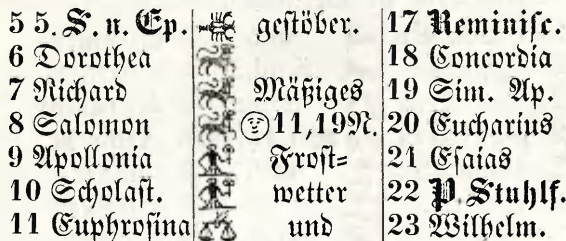 5 5. S. n. Ep. geſtöber. 17 Reminiſc.
6 Dorothea 18 Concordia
7 Richard Mäßiges 19 Sim. Ap.
8 Salomon 11,19N. 20 Eucharius
9 Apollonia Froſt= 21 Eſaias
10 Scholaſt. wetter 22 P. Stuhlf.
11 Euphroſina und 23 Wilhelm.